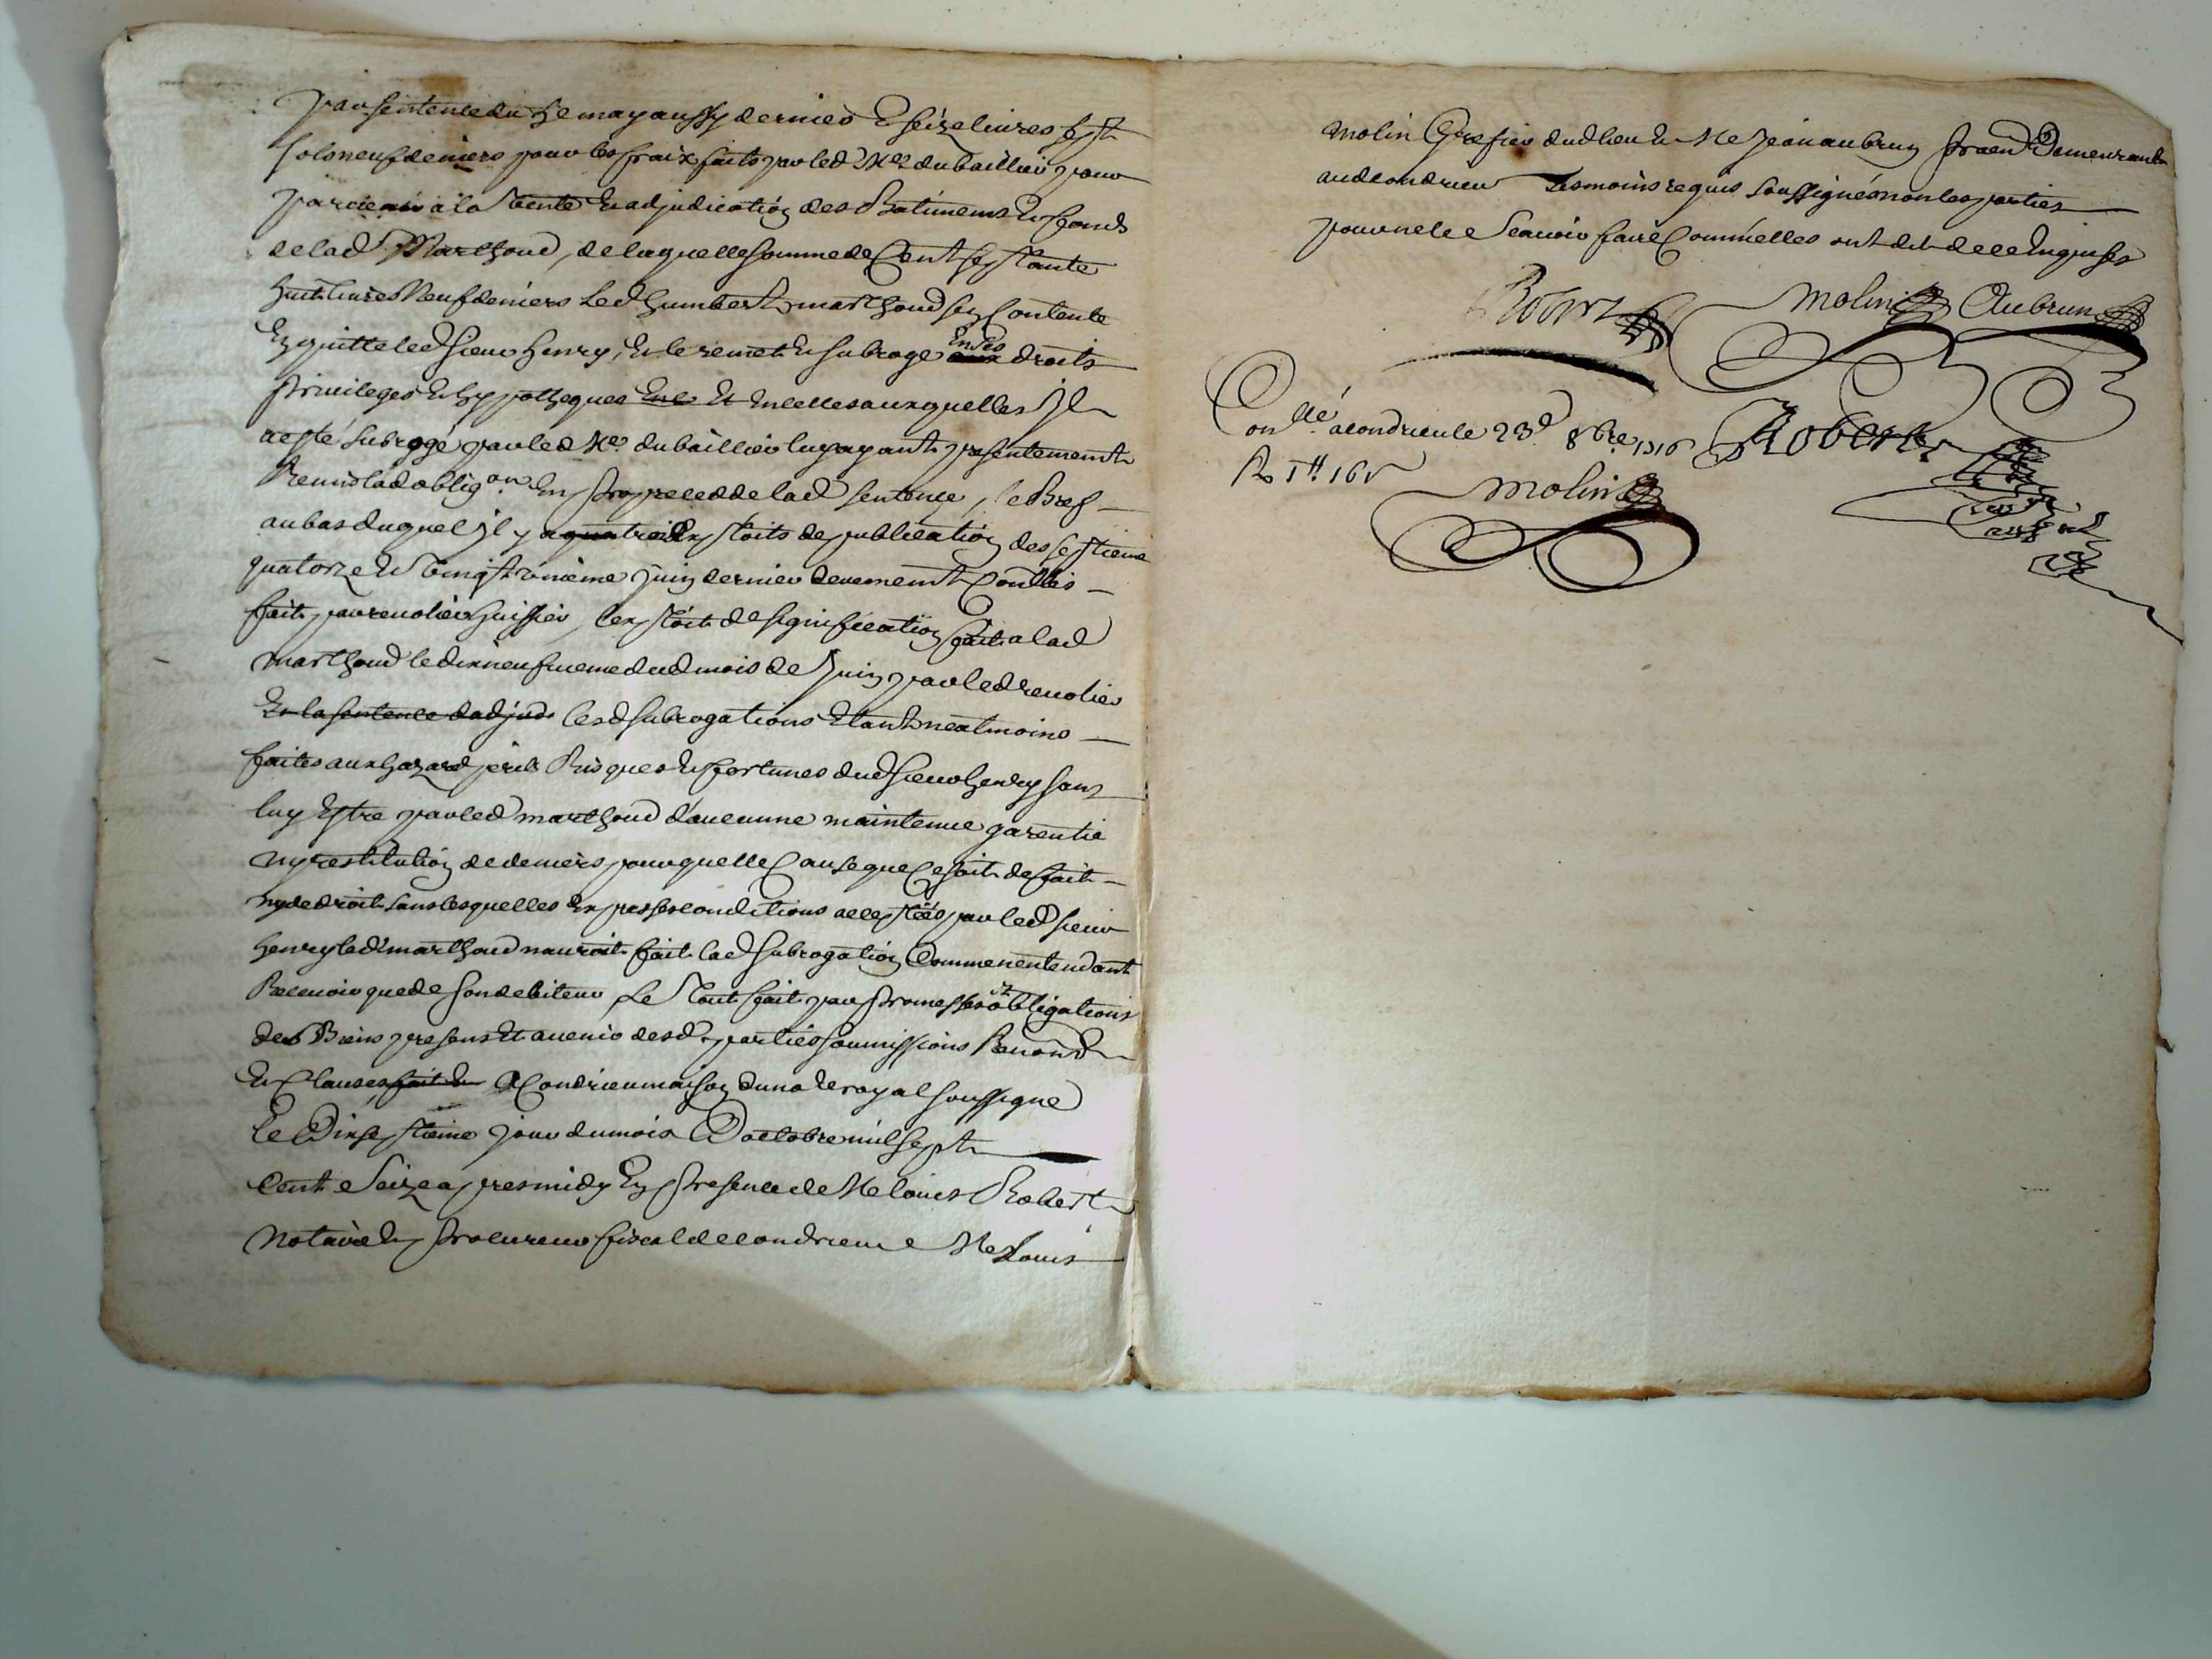 par sentence du 5e may aussy dernier & seize livres sept
sols neuf deniers pour les fraix faits par led Me dubaillier pour
parvenir à la vente & adjudication des Batiments & fonds
de lad Marthoud, de laquelle somme de Cent septante
huit livres Neuf deniers Led humbert marthoud sen Contente
En quitte led sieur henry, & le remet & subroge En ses droits
privileges & hyppotheques En & Et En celles auxquelles Jl
a esté subrogé par led Me dubaillier luy ayant presentement
Remis lad oblig.on En proceed de lad sentence, le Bref
au bas duquel Jl y a quatre Exploits de publication des septieme
quatorze & vingt unieme Juin dernier deuement Conllés
fait par renolier huissier, lexploit de signification fait a lad
marthoud le dixneufvieme dud mois de Juin par led renolier
Et la sentence dadjud lesd subrogations Etant neatmoins
faites aux hazard perils Risques & fortunes dud sieur henry sans
luy Estre par led marthoud d'aucunne maintenue garentie
ny restitution de deniers pour quelle Cause que Ce soit de fait
ny de droit sans lesquelles Expresses conditions acceptées par led sieur
henry led marthoud nauroit fait lad subrogation Comme nentendant
Recevoir que de son debiteur Le Tout fait par promesses & obligations
des Biens presens Et avenir desd parties soumissions Renond
& Clauses fait & A Condrieu maison du no.re royal soussigné
le Dixseptieme jour du mois D'octobre mil sept
Cent Seize apres midy En presence de Me louis Robert
Notaire & procureur fiscal de condrieu & Me Louis
molin Grefier dud lieu & Me Jean aubrun praen Demeurants
aud condrieu Tesmoins requis soussignés non les parties
pour ne le Scavoir faire Comm'elles ont dit de ce Enquises
Robert
Molin Aubrun
Conllé a condrieu le 23e 8bre 1716 Robert
R 1tt 16s
Molin